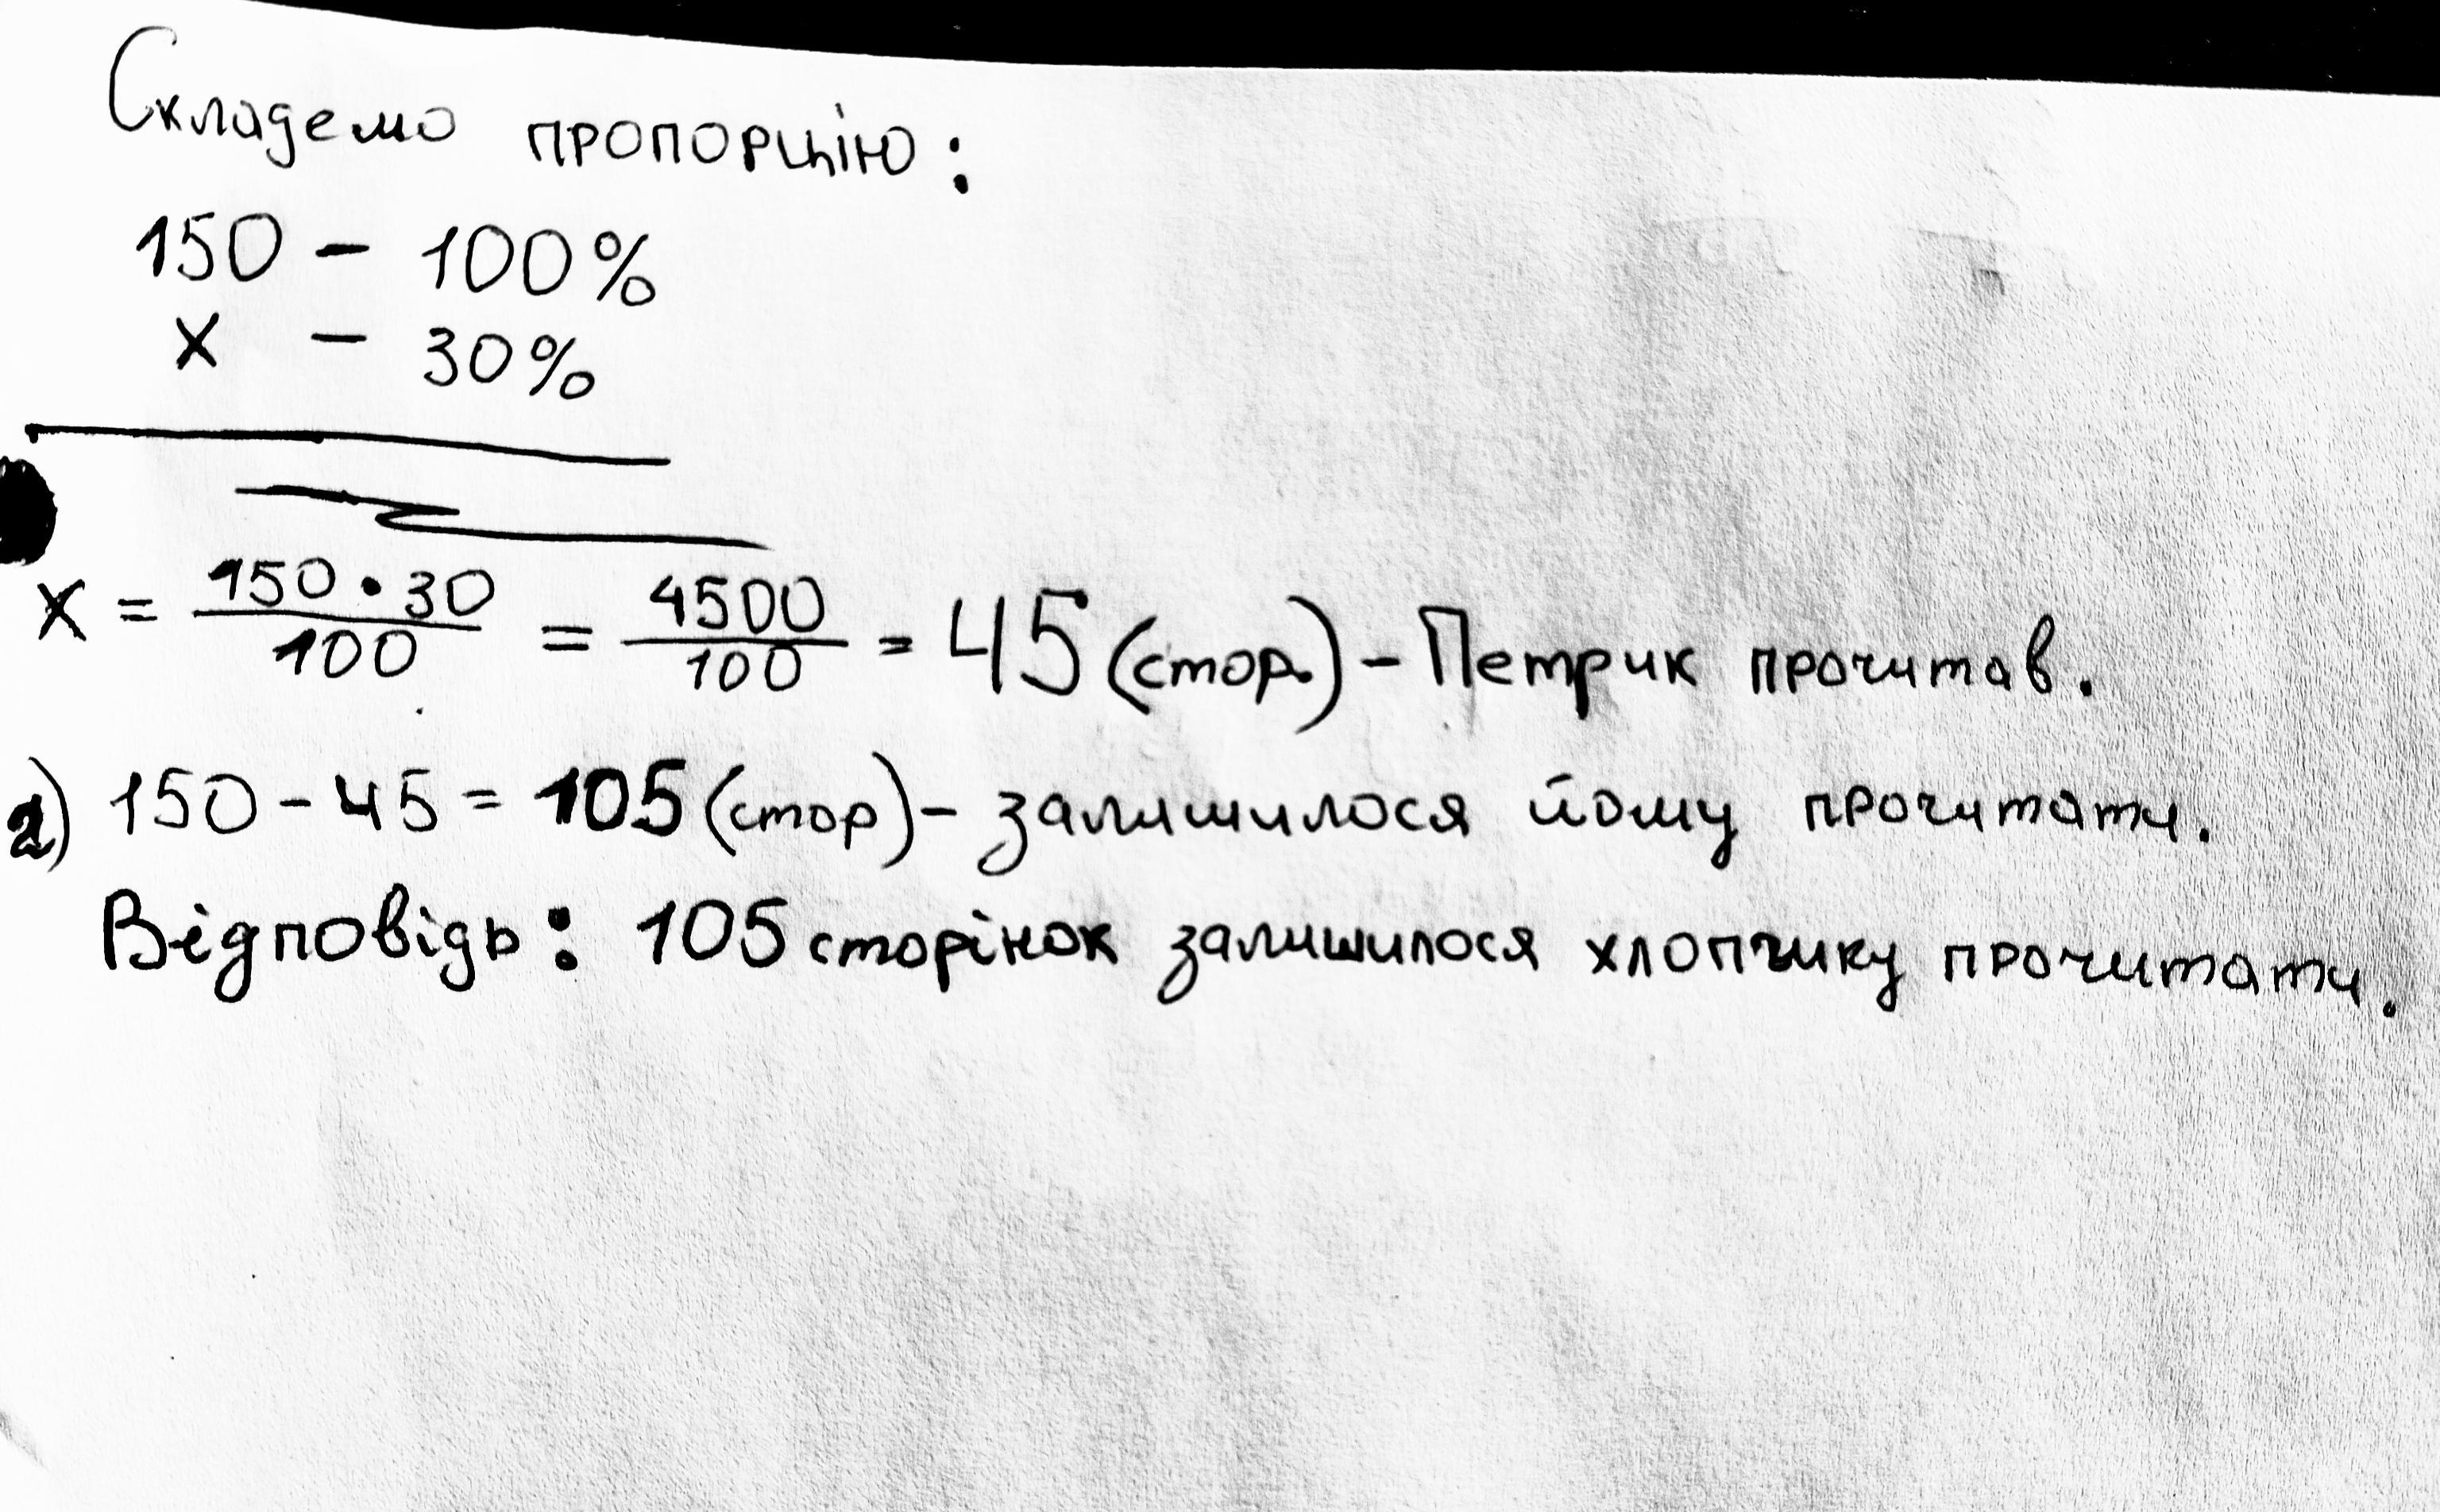 Складемо пропорцію:
150 - 100%
x - 30%
x = 150 • 30 / 100 = 4500 / 100 = 45 (стор.) - Петрик прочитав.
2) 150 - 45 = 105 (стор) - залишилося йому прочитати.
Відповідь: 105 сторінок залишилося хлопчику прочитати.